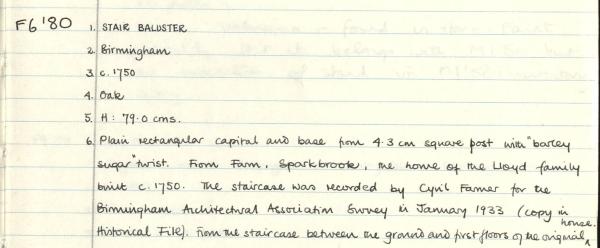 F6'80 1. STAIR BALUSTER
2. Birmingham
3. c.1750
4. Oak
5. H: 79.0 cms.
6. Plain rectangular capital and base from 4.3 cm square post with "barley
sugar" twist. From Farm, Sparkbrook, the home of the Lloyd family
built c.1750. The staircase was recorded by Cyril Farmer for the
Birmingham Architectural Association Survey in January 1933 (copy in
Historical File). From the staircase between the ground and first floors of the original house.